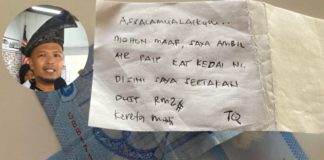 ASSALAMUALAIKUM...
MOHON MAAF, SAYA AMBIL
AIR PAIP KAT KEDAI NI.
DISINI SAYA SERTAKAN
DUIT RM2
Kereta TQ